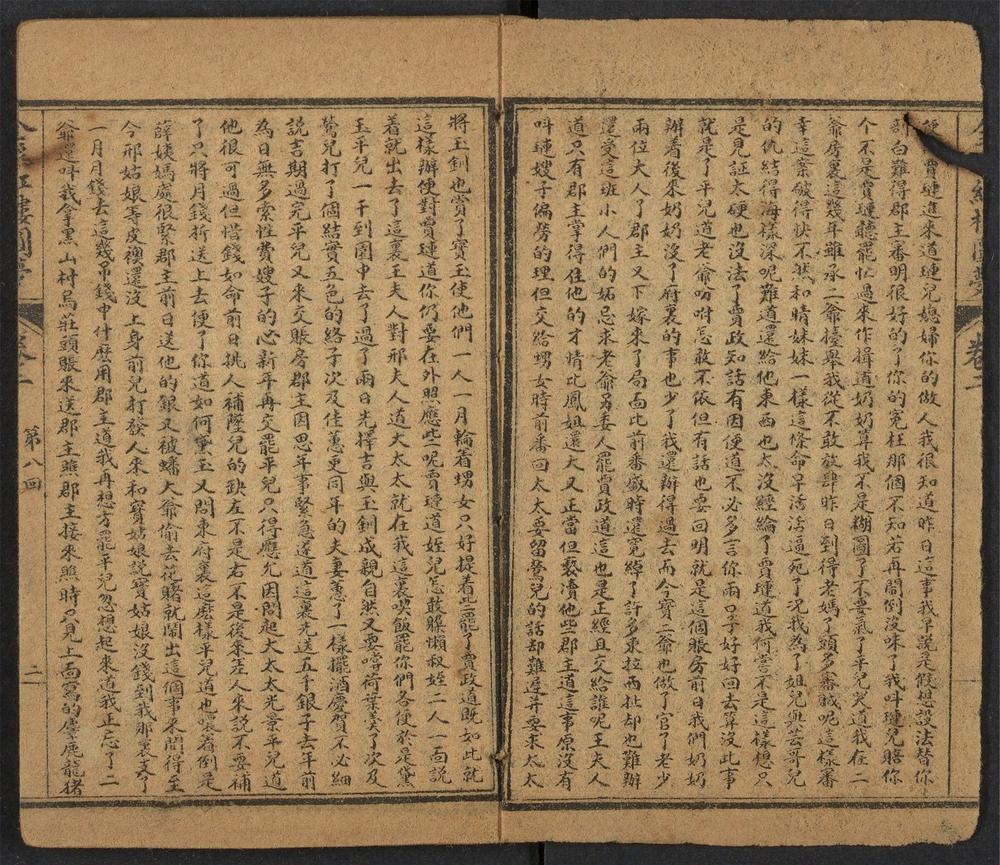 賈璉進來道璉兒媳婦你的做人我很知道昨日這事我早說是假想設法替你
部白難得郡主審明很好的了你的冤枉那個不知若再鬧倒沒味了我叫璉兒賠你
个不是賈璉聽罷忙過來作揖道奶奶算我不是糊圖了不要氣了平兒哭道我在二
爺房裏這幾年雖承二爺擡舉我從不敢放肆昨日到得老媽丫頭多審賊呢這樣審
幸這案破得快不然和晴妹妹一樣這條命早活活逼死了况我為了姐兒與芸哥兒
的仇結得海樣深呢難道還給他東西也太沒經綸了賈璉道我何嘗不是這樣想只
是見証太硬也沒法了賈政知話有因便道不必多言你兩口子好好回去算沒此事
就是了平兒道老爺吩咐怎敢不依但有話也要回明就是這個賬房前日我們奶奶
辦着後來奶奶沒了府裏的事也少了我還辦得過去而今寶二爺也做了官了老少
兩位大人了郡主又下嫁來了局面比前番盛時還寬綽了許多東拉西扯却也難辦
還受這班小人們的妬忌求老爺另委人罷賈政道這也是正經且交給誰呢王夫人
道只有郡主掌得住他的才情比鳳姐還大又正當但褻瀆他些郡主道這事原沒有
叫璉嫂子偏勞的理但交給甥女時前番回太太要留鶯兒的話却難遲并要求太太
將玉釧也賞了寶玉使他們一人一月輪着甥女只好提着些罷了賈政道既如此就
這樣辦便對賈璉道你仍要在外照應些呢賈璉道姪兒怎敢躱懶叔姪二人一面說
着就出去了這裏王夫人對邢夫人道大太太就在我這裏喫飯罷你們各便於是黛
玉平兒一干到園中去了過了兩日先擇吉與玉釧成親自然又要嚐荷葉羹了次及
鶯兒打了個結實五色的絡子次及佳蕙更同年的夫妻蕙了一樣擺酒慶賀不必細
說吉期過完平兒又來交賬房郡主因思年事緊急遂道這裏先送五千銀子去年前
為日無多索性費嫂子的心新年再交罷平兒只得應允因問起大太太光景平兒道
他很可過但惜錢如命前日挑人補墜兒的缺左不是右不是後來差人來說不要補
了只將月錢折送上去便了你道如何黛玉又問東府裏這麽樣平兒道也還着倒是
薛姨媽處很緊郡主前日送他的銀又被蟠大爺偷去花賭就鬧出這個事來間得至
今邢姑娘等皮襖還沒上身前兒打發人來和寶姑娘說寶姑娘沒錢到我那裏去了
一月月錢去這幾吊錢中什麽用郡主道我再想方罷平兒忽想起來道我正忘了二
爺還叫我拿黑山村烏莊頭賬來送郡主瞧郡主接來瞧時只見上面寫的麈鹿龍猪
卷二
第八四
二